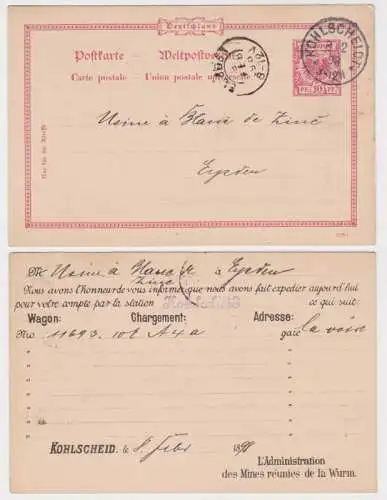 Deutschland
Postkarte — Weltpostverein
Carte postale — Union postale universelle
KOHLSCHEID
10 PF.
Usine à Blanc de Zinc
Eysden
Mr Usine à Blanc de Zinc à Eysden
Nous avons l'honneur de vous informer que nous avons fait expedier aujourd'hui
pour votre compte par la station Kohlscheid ce qui suit:
Wagon: Chargement: Adresse:
Nro 11693 10t A4a gare la voire
KOHLSCHEID, le 8 Febr 1898
L'Administration
des Mines réunies de la Wurm.